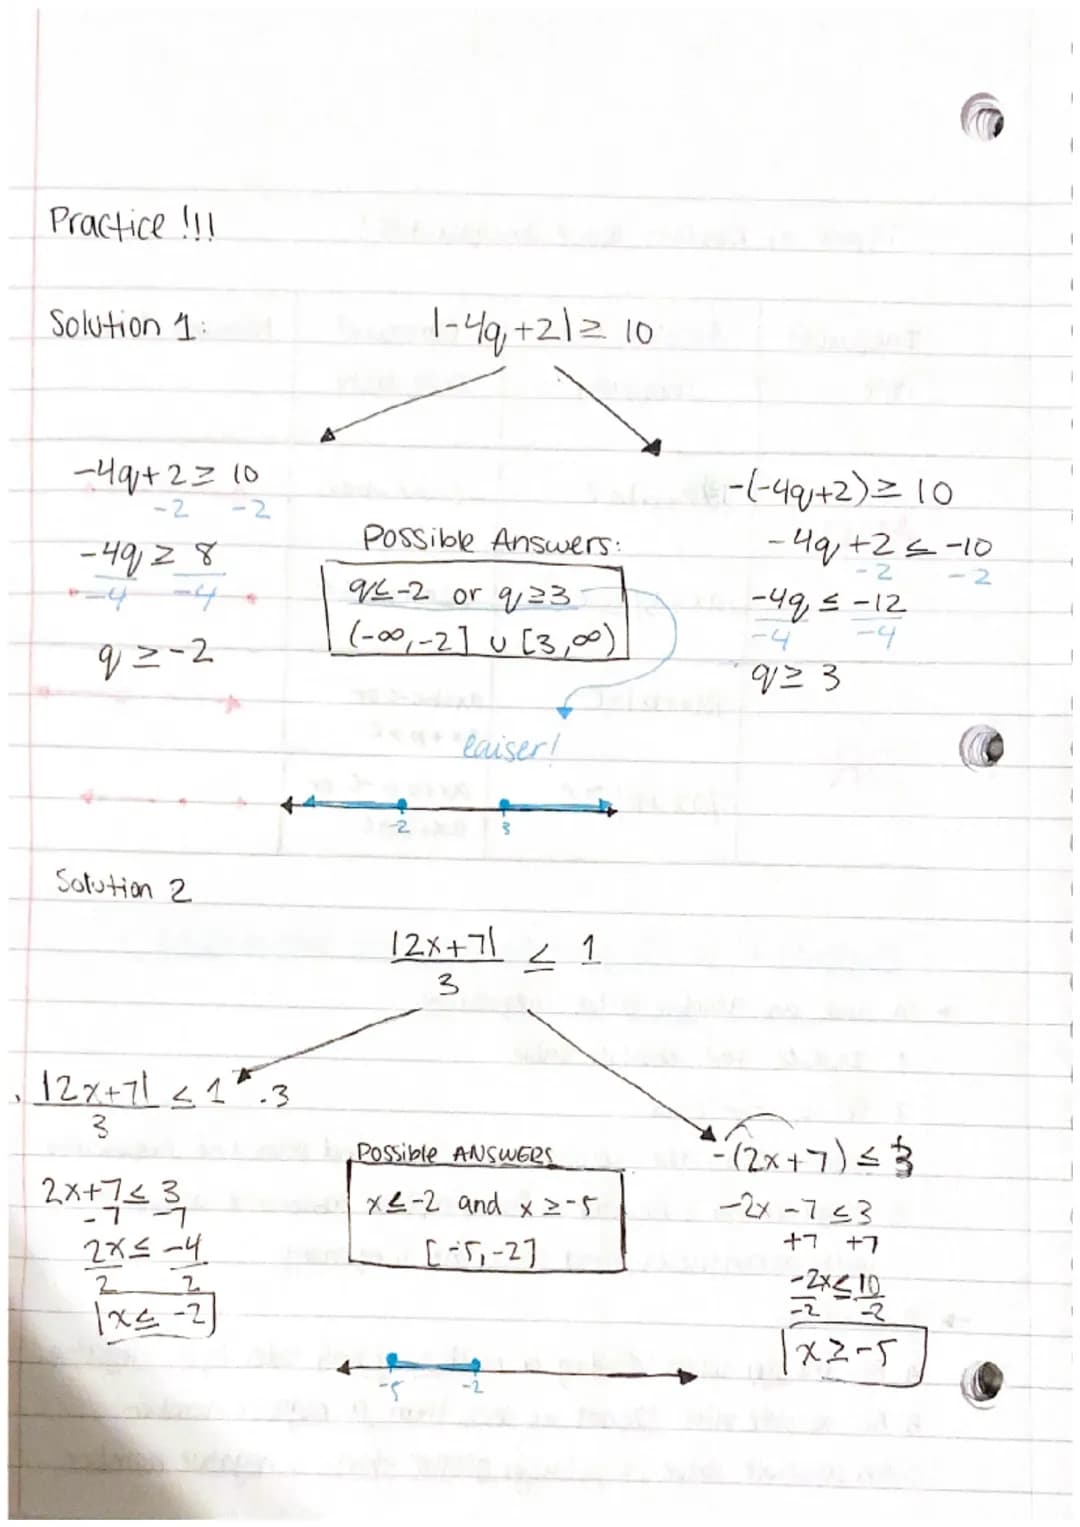 Practice !!!
Solution 1:
|-4q+2| ≥ 10
-4q+2 ≥ 10
-2 -2
-4q ≥ 8
-4 -4
q ≥ -2
Possible Answers:
q≤-2 or q≥3
(-∞,-2] ∪ [3,∞)
eaiser!
-(-4q+2) ≥ 10
-4q+2 ≤ -10
-2 -2
-4q ≤ -12
-4 -4
q ≥ 3
-2 3
Solution 2
|2x+7| ≤ 1
3
|2x+7| ≤ 1 .3
3
2x+7 ≤ 3
-7 -7
2x ≤ -4
2 2
x ≤ -2
Possible ANSWERS
x≤-2 and x ≥-5
[-5,-2]
-(2x+7) ≤ 3
-2x-7 ≤3
+7 +7
-2x≤10
-2 -2
x≥-5
-5 -2